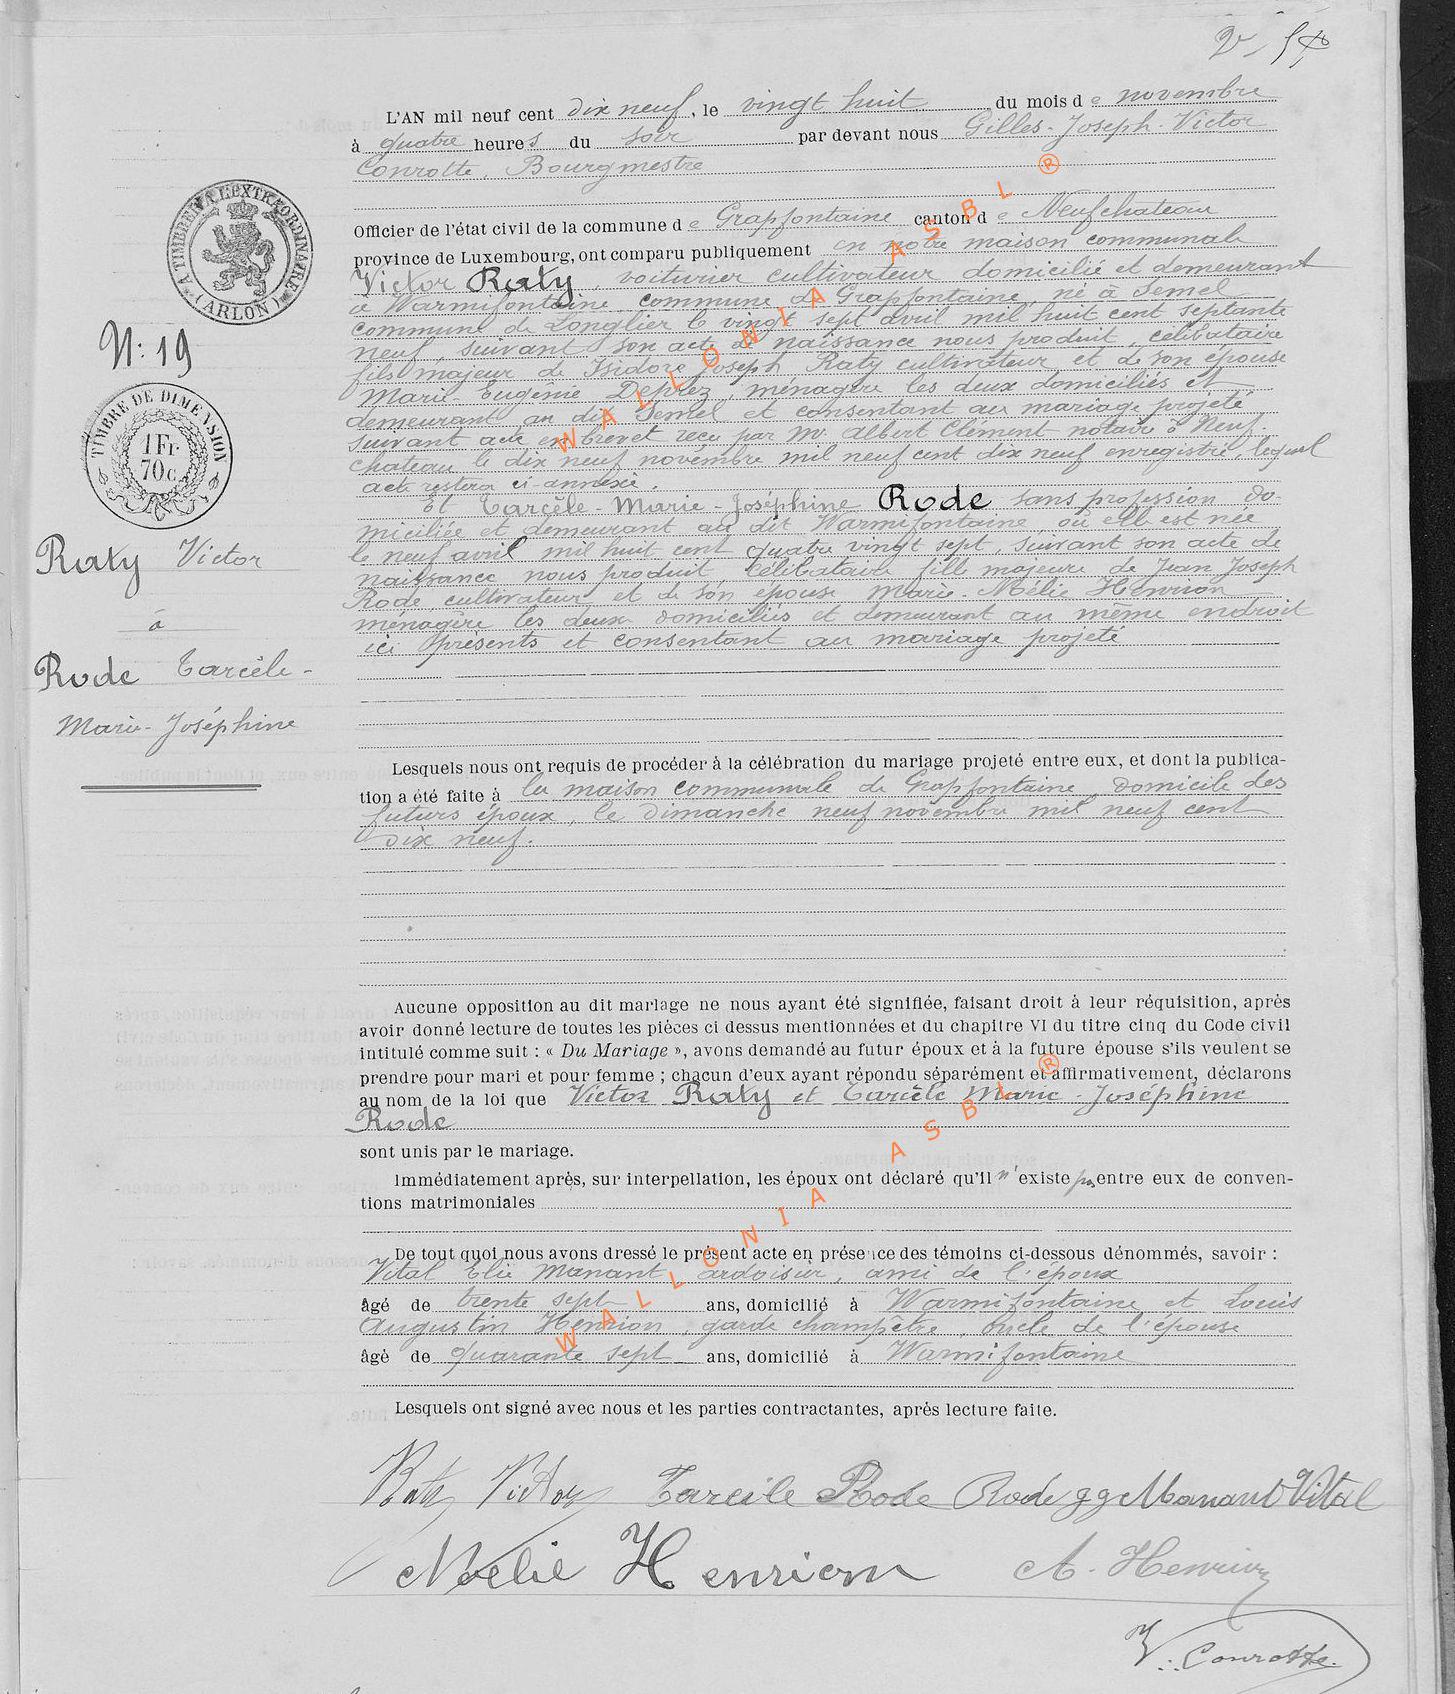 L'AN mil neuf cent dix neuf, le vingt huit du mois de novembre
à quatre heures du soir par devant nous Gilles-Joseph-Victor
Conrotte, Bourgmestre
Officier de l'état civil de la commune de Grapfontaine canton de Neufchateau
province de Luxembourg, ont comparu publiquement en notre maison communale
Victor Raty, voiturier cultivateur domicilié et demeurant
à Warmifontaine commune de Grapfontaine, né à Semel
commune de Longlier le vingt sept avril mil huit cent septante
neuf, suivant son acte de naissance nous produit, célibataire
fils majeur de Isidore Joseph Raty cultivateur et de son épouse
Marie-Eugénie Deprez, ménagère les deux domiciliés et
demeurant au dit Semel et consentant au mariage projeté
suivant acte en brevet reçu par Mr Albert Clément notaire à Neuf-
chateau le dix neuf novembre mil neuf cent dix neuf enregistré, lequel
acte restera ci-annexé.
Et Tarcèle-Marie-Joséphine Rode sans profession do-
miciliée et demeurant au dit Warmifontaine où elle est née
le neuf avril mil huit cent quatre vingt sept, suivant son acte de
naissance nous produit, célibataire fille majeure de Jean Joseph
Rode cultivateur et de son épouse Marie-Mélie Henrion
ménagère les deux domiciliés et demeurant au même endroit
ici présents et consentant au mariage projeté
A TIMBRER A L'EXTRAORDINAIRE
(ARLON)
N: 19
TIMBRE DE DIMENSION
1 Fr.
70 c.
Raty Victor
à
Rode Tarcèle-
Marie-Joséphine
Lesquels nous ont requis de procéder à la célébration du mariage projeté entre eux, et dont la publica-
tion a été faite à la maison communale de Grapfontaine, domicile des
futurs époux, le dimanche neuf novembre mil neuf cent
dix neuf.
Aucune opposition au dit mariage ne nous ayant été signifiée, faisant droit à leur réquisition, après
avoir donné lecture de toutes les pièces ci dessus mentionnées et du chapitre VI du titre cinq du Code civil
intitulé comme suit : « Du Mariage », avons demandé au futur époux et à la future épouse s'ils veulent se
prendre pour mari et pour femme ; chacun d'eux ayant répondu séparément et affirmativement, déclarons
au nom de la loi que Victor Raty et Tarcèle Marie-Joséphine
Rode
sont unis par le mariage.
Immédiatement après, sur interpellation, les époux ont déclaré qu'il n'existe pas entre eux de conven-
tions matrimoniales
De tout quoi nous avons dressé le présent acte en présence des témoins ci-dessous dénommés, savoir :
Vital Elie Manant, ardoisier, ami de l'époux
âgé de trente sept ans, domicilié à Warmifontaine et Louis
Augustin Henrion, garde champêtre, oncle de l'épouse
âgé de quarante sept ans, domicilié à Warmifontaine
Lesquels ont signé avec nous et les parties contractantes, après lecture faite.
Raty Victor Tarcile Rode Rode gg Manant Vital
Mélie Henrion A. Henrion
V. Conrotte.
WALLONIA ASBL ®
WALLONIA ASBL ®